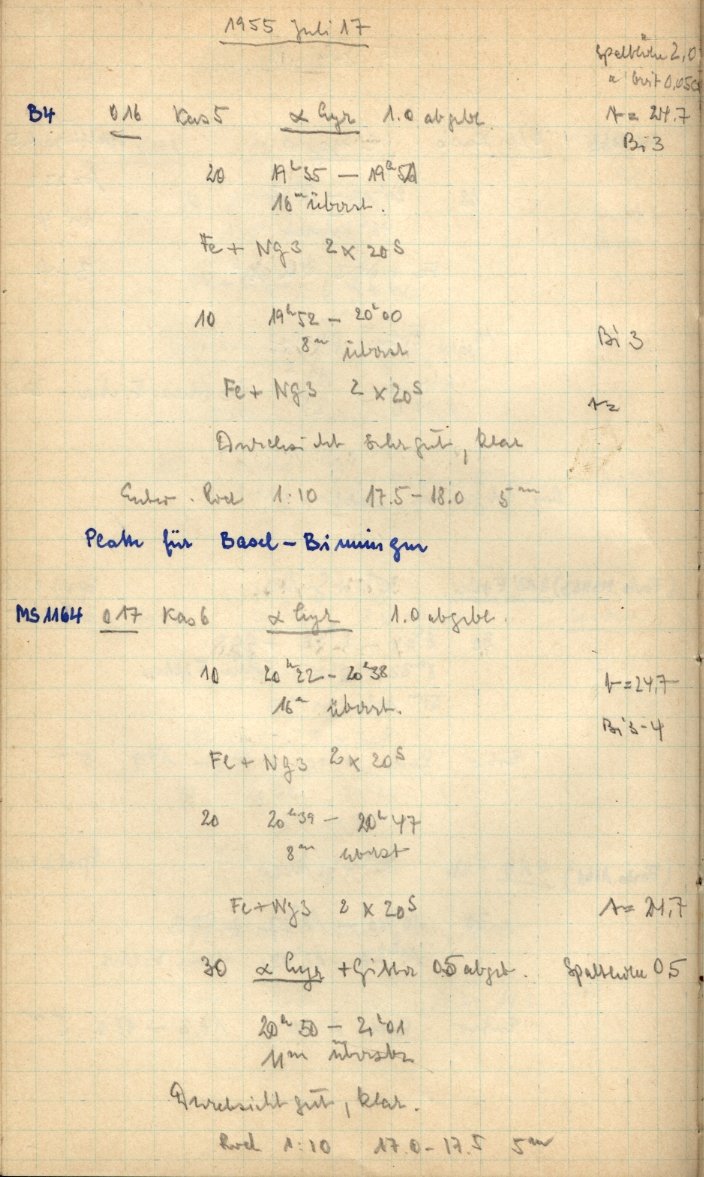 1955 Juli 17
Spalthöhe 2,0
" breit 0,05
B4 016 Kas 5 α Lyr 1.0 abgebl. t = 24.7
Bi 3
20 19h35 – 19h51
16m überst.
Fe + Ng3 2 x 20s
10 19h52 – 20h00
8m überst
Bi 3
Fe + Ng3 2 x 20s
t =
Durchsicht sehr gut, klar
Entw. Rod 1:10 17.5 – 18.0 5m
Platte für Basel –
MS 1164 017 Kas 6 α Lyr 1.0 abgebl.
10 20h22 – 20h38 t = 24,7
16m überst.
Bi 3-4
Fe + Ng3 2 x 20s
20 20h39 – 20h47
8m überst
Fe + Ng3 2 x 20s t = 24,7
30 α Lyr + Gitter 05 abgeb. Spalthöhe 05
20h50 – 21h01
11m
Durchsicht gut, klar.
Rod 1:10 17.0 – 17.5 5m